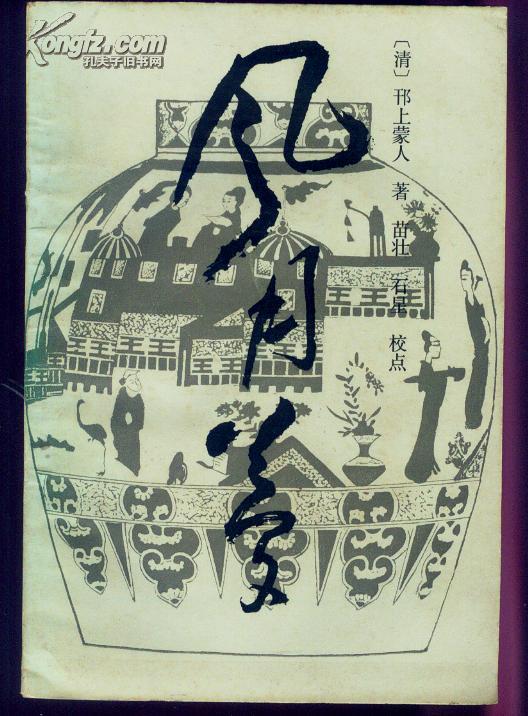 Kongfz.com
孔夫子旧书网
〔清〕邗上蒙人 著 苗壮 石星 校点
风月梦